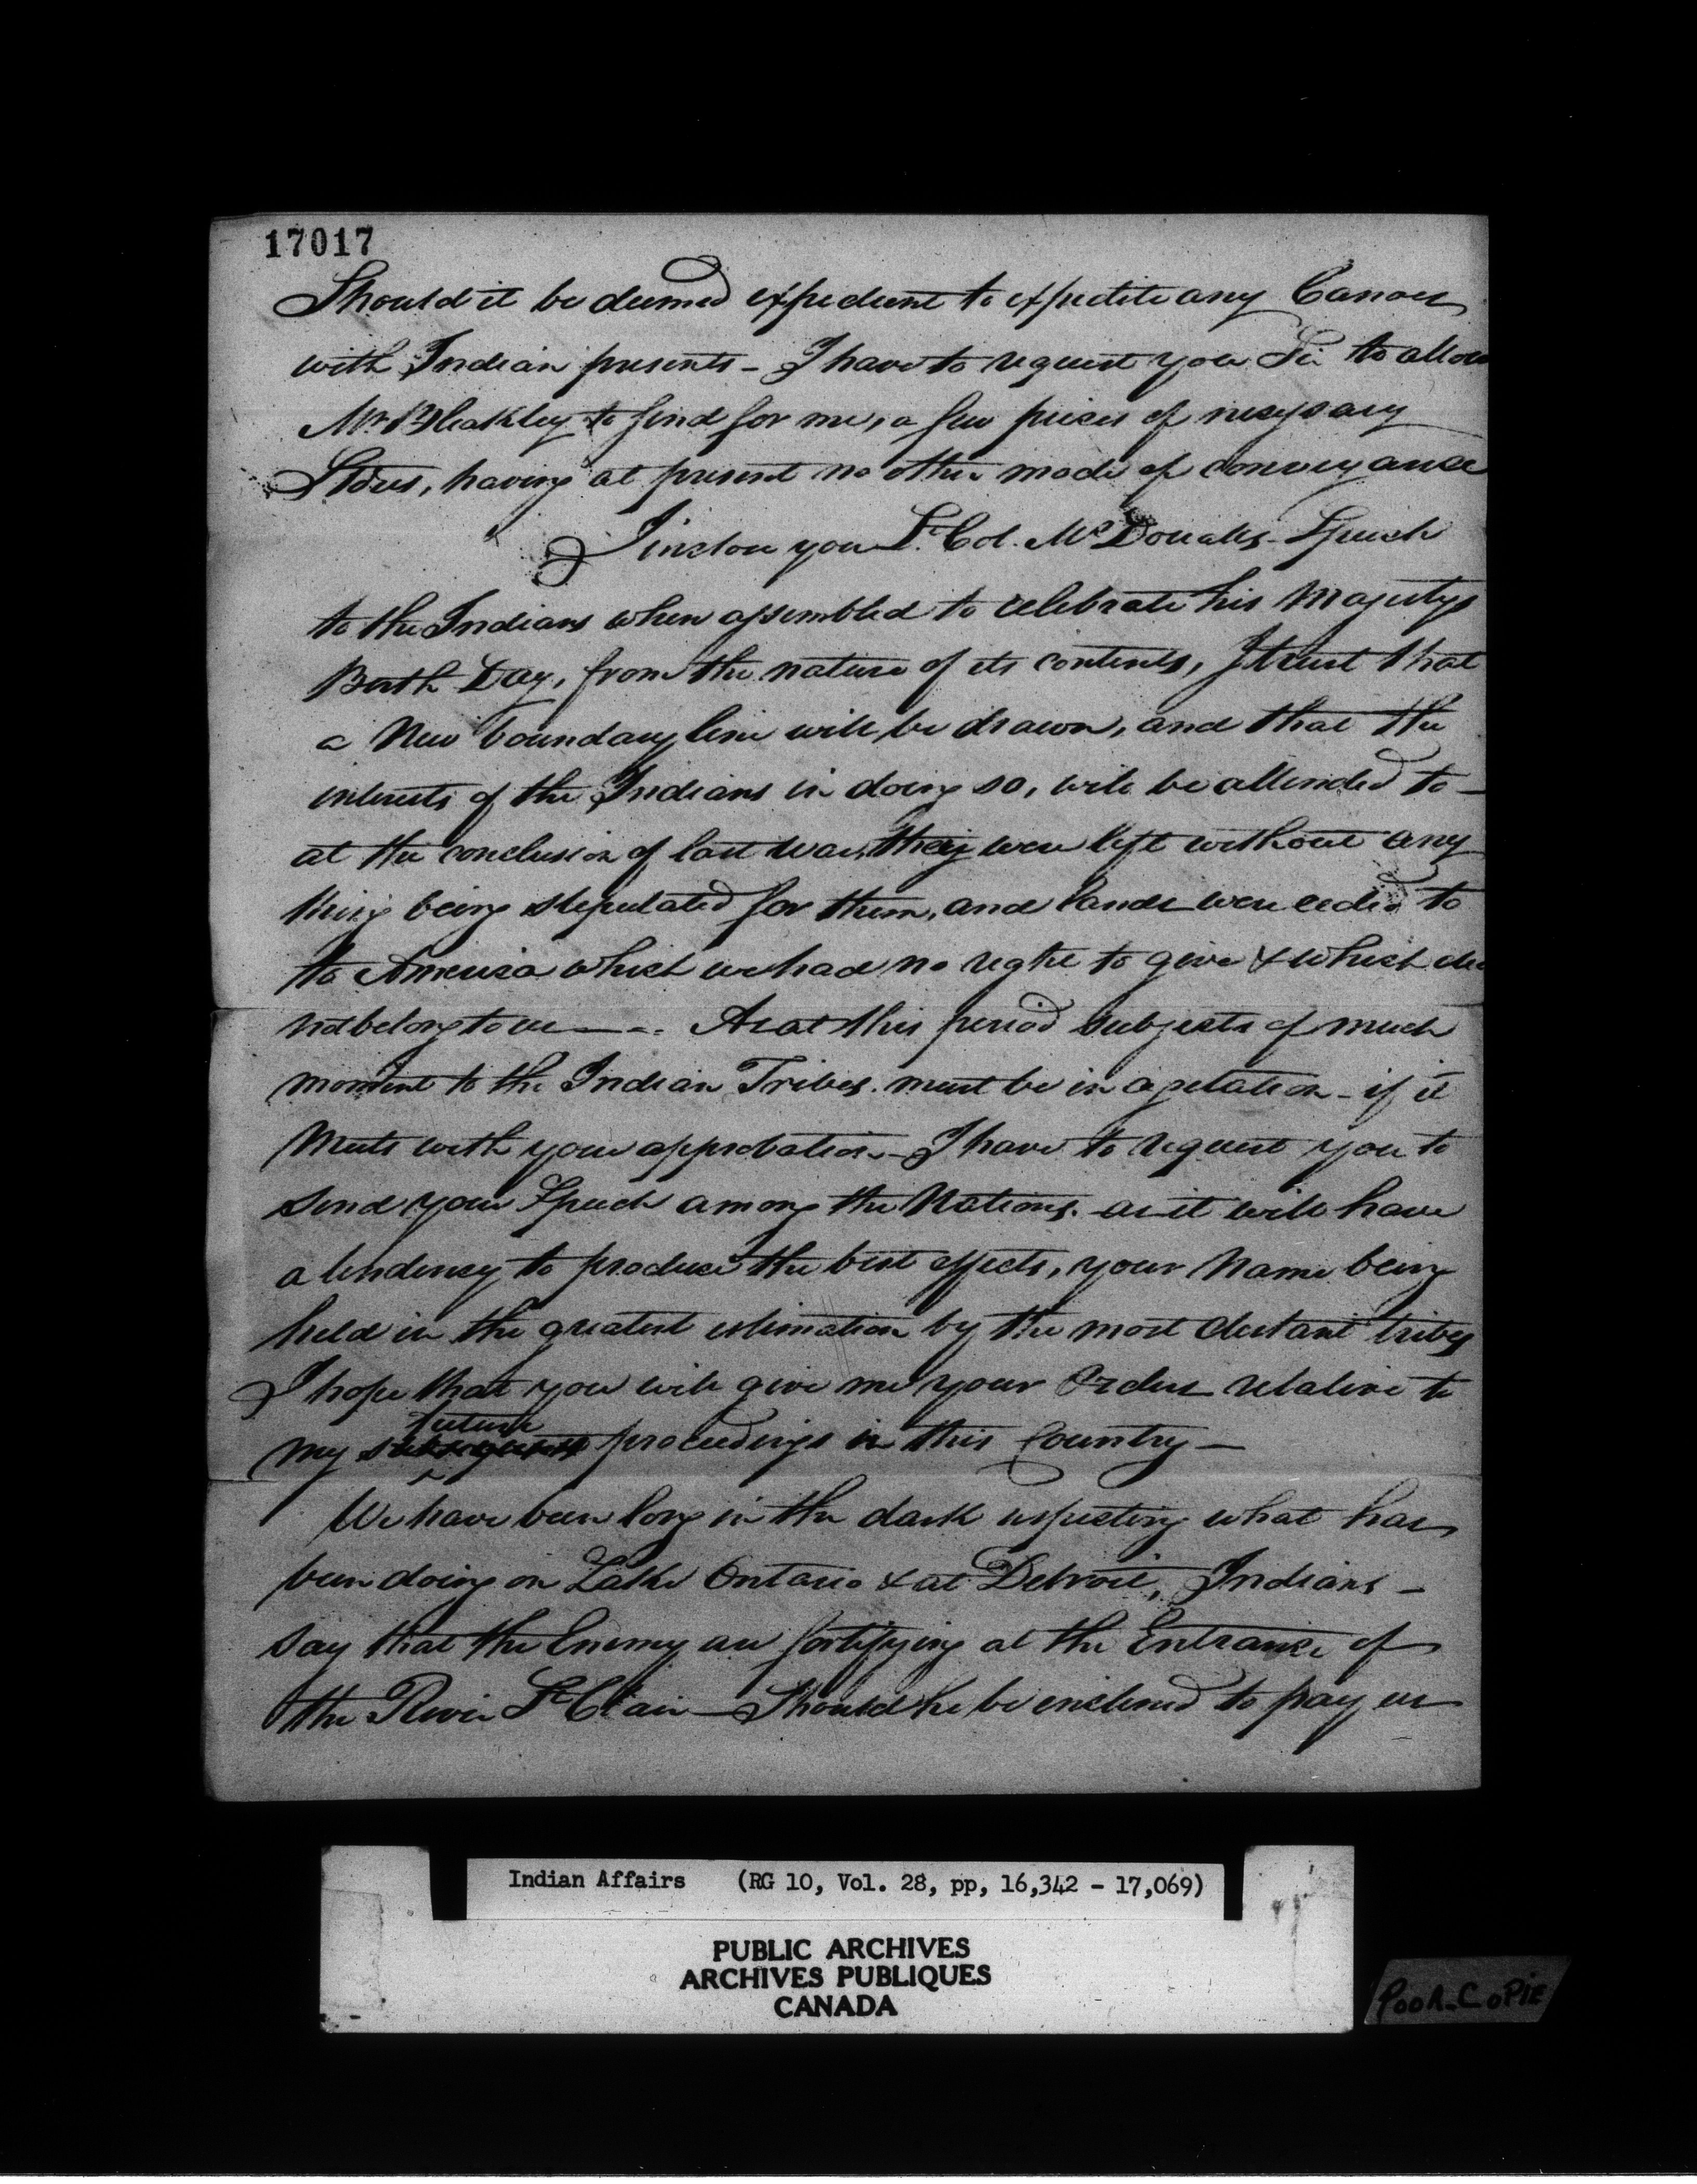 17017
Should it be deemed expedient to expedite any Canoes
with Indian presents - I have to request you Sir to allow
Mr Bleakley to send for me, a few pieces of necessary
Stores, having at present no other mode of conveyance
I inclose you Lt. Col. McDoualls Speech
to the Indians when assembled to celebrate his Majestys
Birth Day, from the nature of its contents, I trust that
a New boundary line will be drawn, and that the
interests of the Indians in doing so, will be attended to -
at the conclusion of last war, they were left without any
thing being stipulated for them, and lands were ceded to
to America which we had no right to give & which did
not belong to us — - . As at this period subjects of much
moment to the Indian Tribes must be in agitation - if it
Meets with your approbation - I have to request you to
send your Speech among the Nations. as it will have
a tendency to produce the best effects, your Name being
held in the greatest estimation by the most distant tribes
I hope that you will give me your Orders relative to
future
my subsequent proceedings in this Country —
We have been long in the dark respecting what has
been doing on Lake Ontario & at Detroit, Indians -
say that the Enemy are fortifying at the Entrance of
the River St Clair — Should he be inclined to pay us
Indian Affairs (RG 10, Vol. 28, pp, 16,342 - 17,069)
PUBLIC ARCHIVES
ARCHIVES PUBLIQUES
CANADA
POOR COPIE